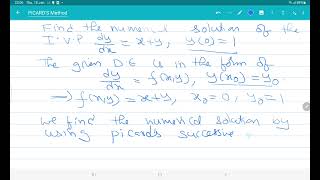 PICARD'S Method
Find the numerical solution of the
I.V.P dy/dx = x+y, y(0)=1
The given D.E is in the form of
dy/dx = f(x,y), y(x₀)=y₀
→ f(x,y) = x+y, x₀=0, y₀=1
we find the numerical solution by
using picards successive